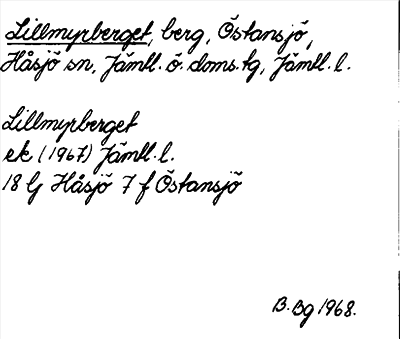 Lillmyrberget, berg, Östansjö,
Håsjö sn, Jämtl. ö. doms. tg, Jämtl. l.
Lillmyrberget
ek (1967) Jämtl. l.
18 G Håsjö 7 f Östansjö
B. Bg 1968.